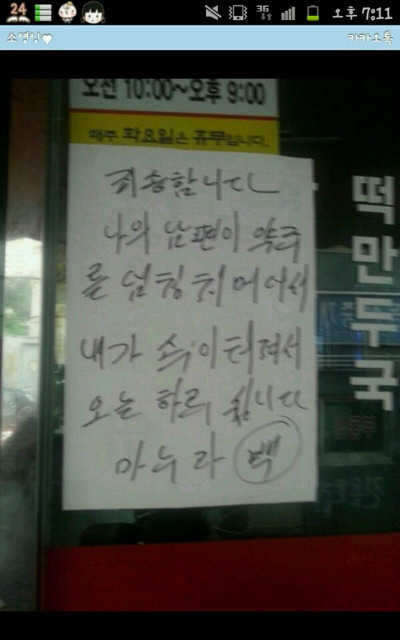 24
3G
오후 7:11
카카오톡
오전 10:00~오후 9:00
매주 화요일은 휴무입니다.
죄송합니다
나의 남편이 약주
를 넘 처먹어서
내가 속이 터져서
오늘 하루 쉽니다
마누라 백
떡만두국